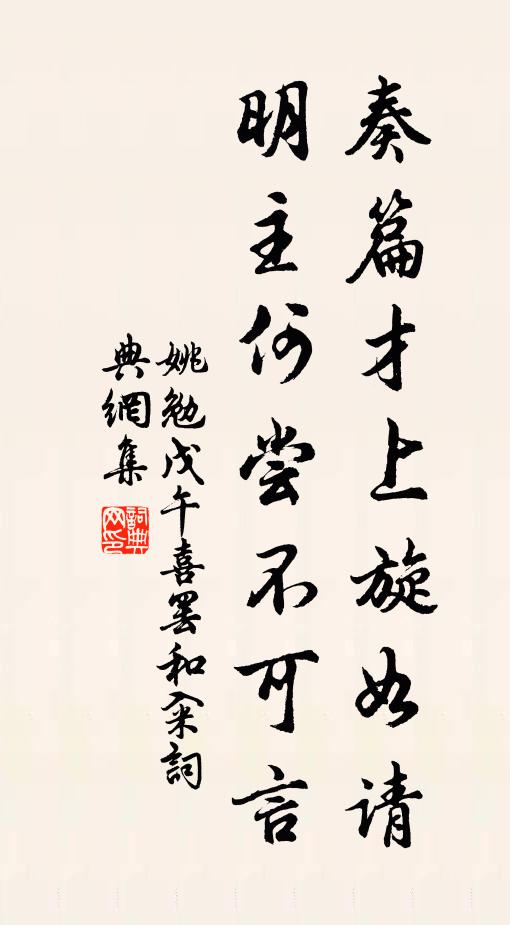 奏篇才上旋如请
明主何尝不可言
姚勉戊午喜罢和籴詞
典網集
詞典网印